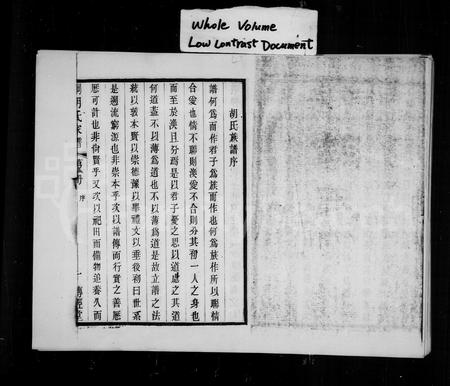 Whole Volume
Low Contrast Document
胡氏族譜序
譜何爲而作君子爲族而作也何爲族作所以聯情
合愛也情不聯則渙愛不合則分其初一人之身也
而至於渙且分焉是以君子憂之思以道處之其道
何道蓋不以薄爲道也不以薄爲道是故立譜之法
統以敦本賢以崇德
禮文以垂後務曰世系
是邇流窮源也非崇本乎次以譜傳而行實之善歷
歷可計也非尚賢乎又次以祀田而備物追養久而
胡氏家譜
序
一